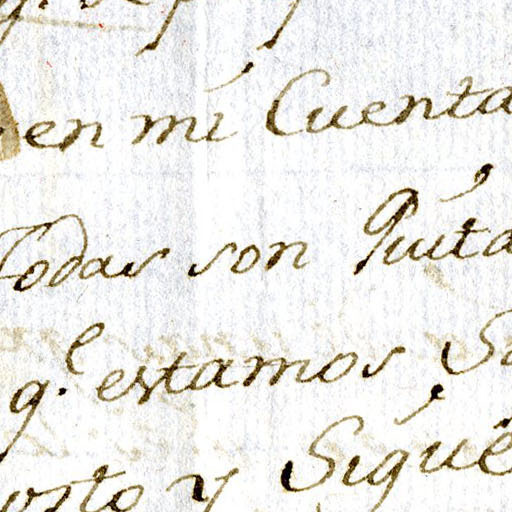 en mi Cuenta
Todas son Quita
q.e estamos Sa
osto y Siguē